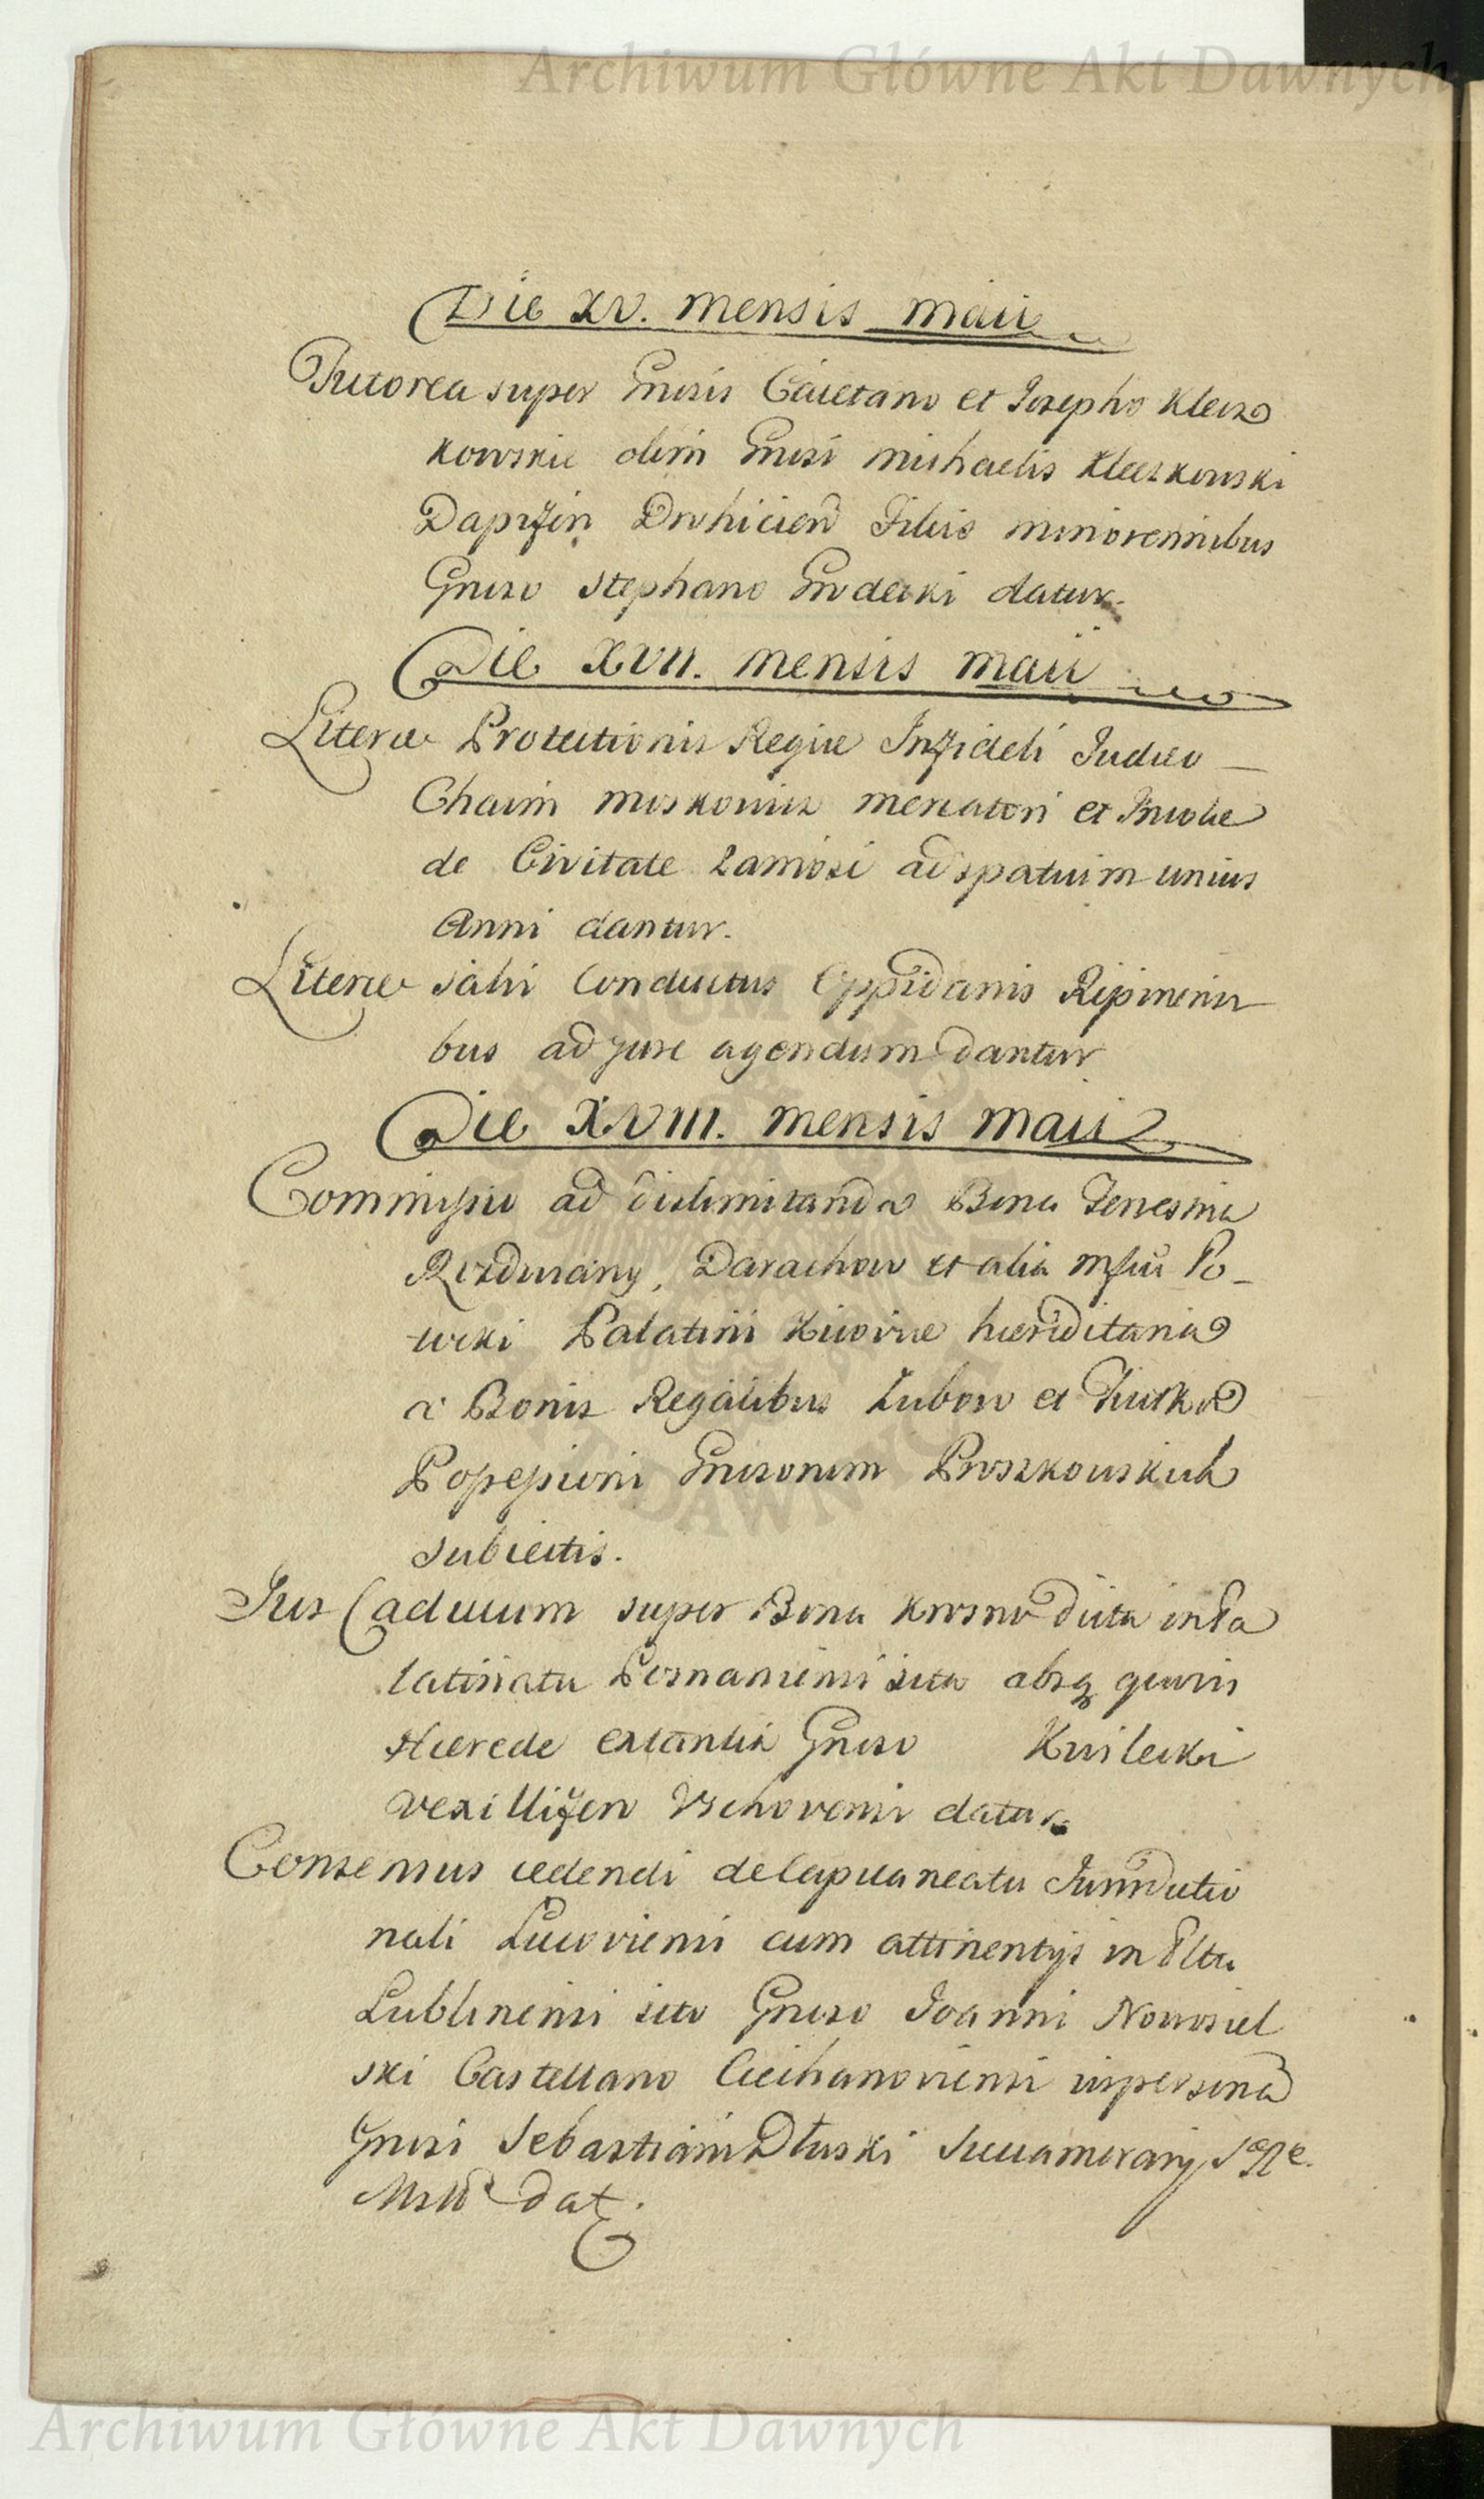 Archiwum Główne Akt Dawnych
Die XV. mensis maii
Tutorea super Gnosis Caietano et Josepho Klecz
kowskie olim Gnosi michaelis Kleczkowski
Dapiferi Drohicien Filiis minorennibus
Gnoso Stephano Godecki datur.
Die XVII. mensis maii
Literæ Protectionis Regiæ Infideli Judæo
Chaim moskowicz mercatori et Incolæ
de Civitate Zamosci ad spatium unius
Anni dantur.
Literæ salvi Conductus Oppidanis Ripinensi
bus ad jure agendum dantur
Die XVIII. mensis maii
Commissio ad dislimitanda Bona
Darachow et alia Po-
tocki Palatini Kijoviæ hæreditaria
a Bonis Regalibus Zubow et
Possessioni Gnosorum Proszkowskich
subiectis.
Jus Caducum super Bona Krosno dicta in Pa
latinatu Posnaniensi sita absq quovis
Hærede extantia Gnoso Kwilecki
vexillifero Wschovensi datur
Consensus cedendi de Capitaneatu Jurisdictio
nali Lucoviensi cum attinentijs in Pltu
Lublinensi sito Gnoso Joanni Nowosiel
ski Castellano Ciechanoviensi in personã
Gnosi Sebastiani Dłuski Succamerarij
dat.
Archiwum Główne Akt Dawnych